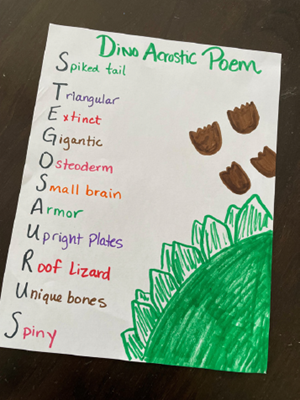 Dino Acrostic Poem
Spiked tail
Triangular
Extinct
Gigantic
Osteoderm
Small brain
Armor
Upright Plates
Roof Lizard
Unique bones
Spiny